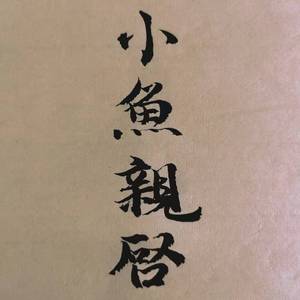 小魚親啓